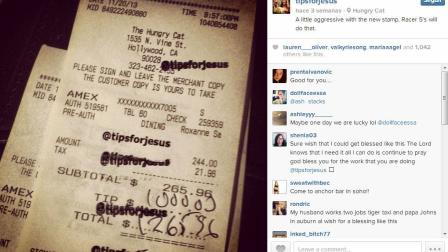 DATE 11/20/13
TIME 9:57:00PM
MID 849222490880
1040854408
The Hungry Cat
1535 N. Vine St.
Hollywood, CA
90028
323-462-
@tipsforjesus
PLEASE SIGN AND LEAVE THE MERCHANT COPY
THE CUSTOMER COPY IS YOURS TO TAKE
AMEX XXXXXXXXXXX7005 S
AUTH 519581 TBL 80 CHECK 259359
PRE-AUTH DINING Roxanne Sa
@tipsforjesus
AMOUNT 244.00
TAX 21.96
@tipsforjesus
SUBTOTAL $ 265.96
TIP $ 10000
@tipsforjesus
TOTAL $
@tipsforjesus
AUTH 519
PRE-AUTH
tipsforjesus
hace 3 semanas · Hungry Cat
Seguir
A little aggressive with the new stamp. Racer 5's will
do that.
lauren___oliver, valkyriesong, mariaasgari
prentaivanovic
Good for you...
dollfaceessa
@ash_stacks
ashleyyy______
Maybe one day we are lucky lol @dollfaceessa
shenia03
Sure wish that I could get blessed like this. The Lord
knows that I need it all I can do is continue to pray
god bless you for the work that you are doing
@tipsforjesus
sweetwithbec
Come to anchor bar in soho!!
rondric
My husband works two jobs tiger taxi and papa Johns
in auburn al wish for a blessing like this
inked_bitch77
Leave a comment...